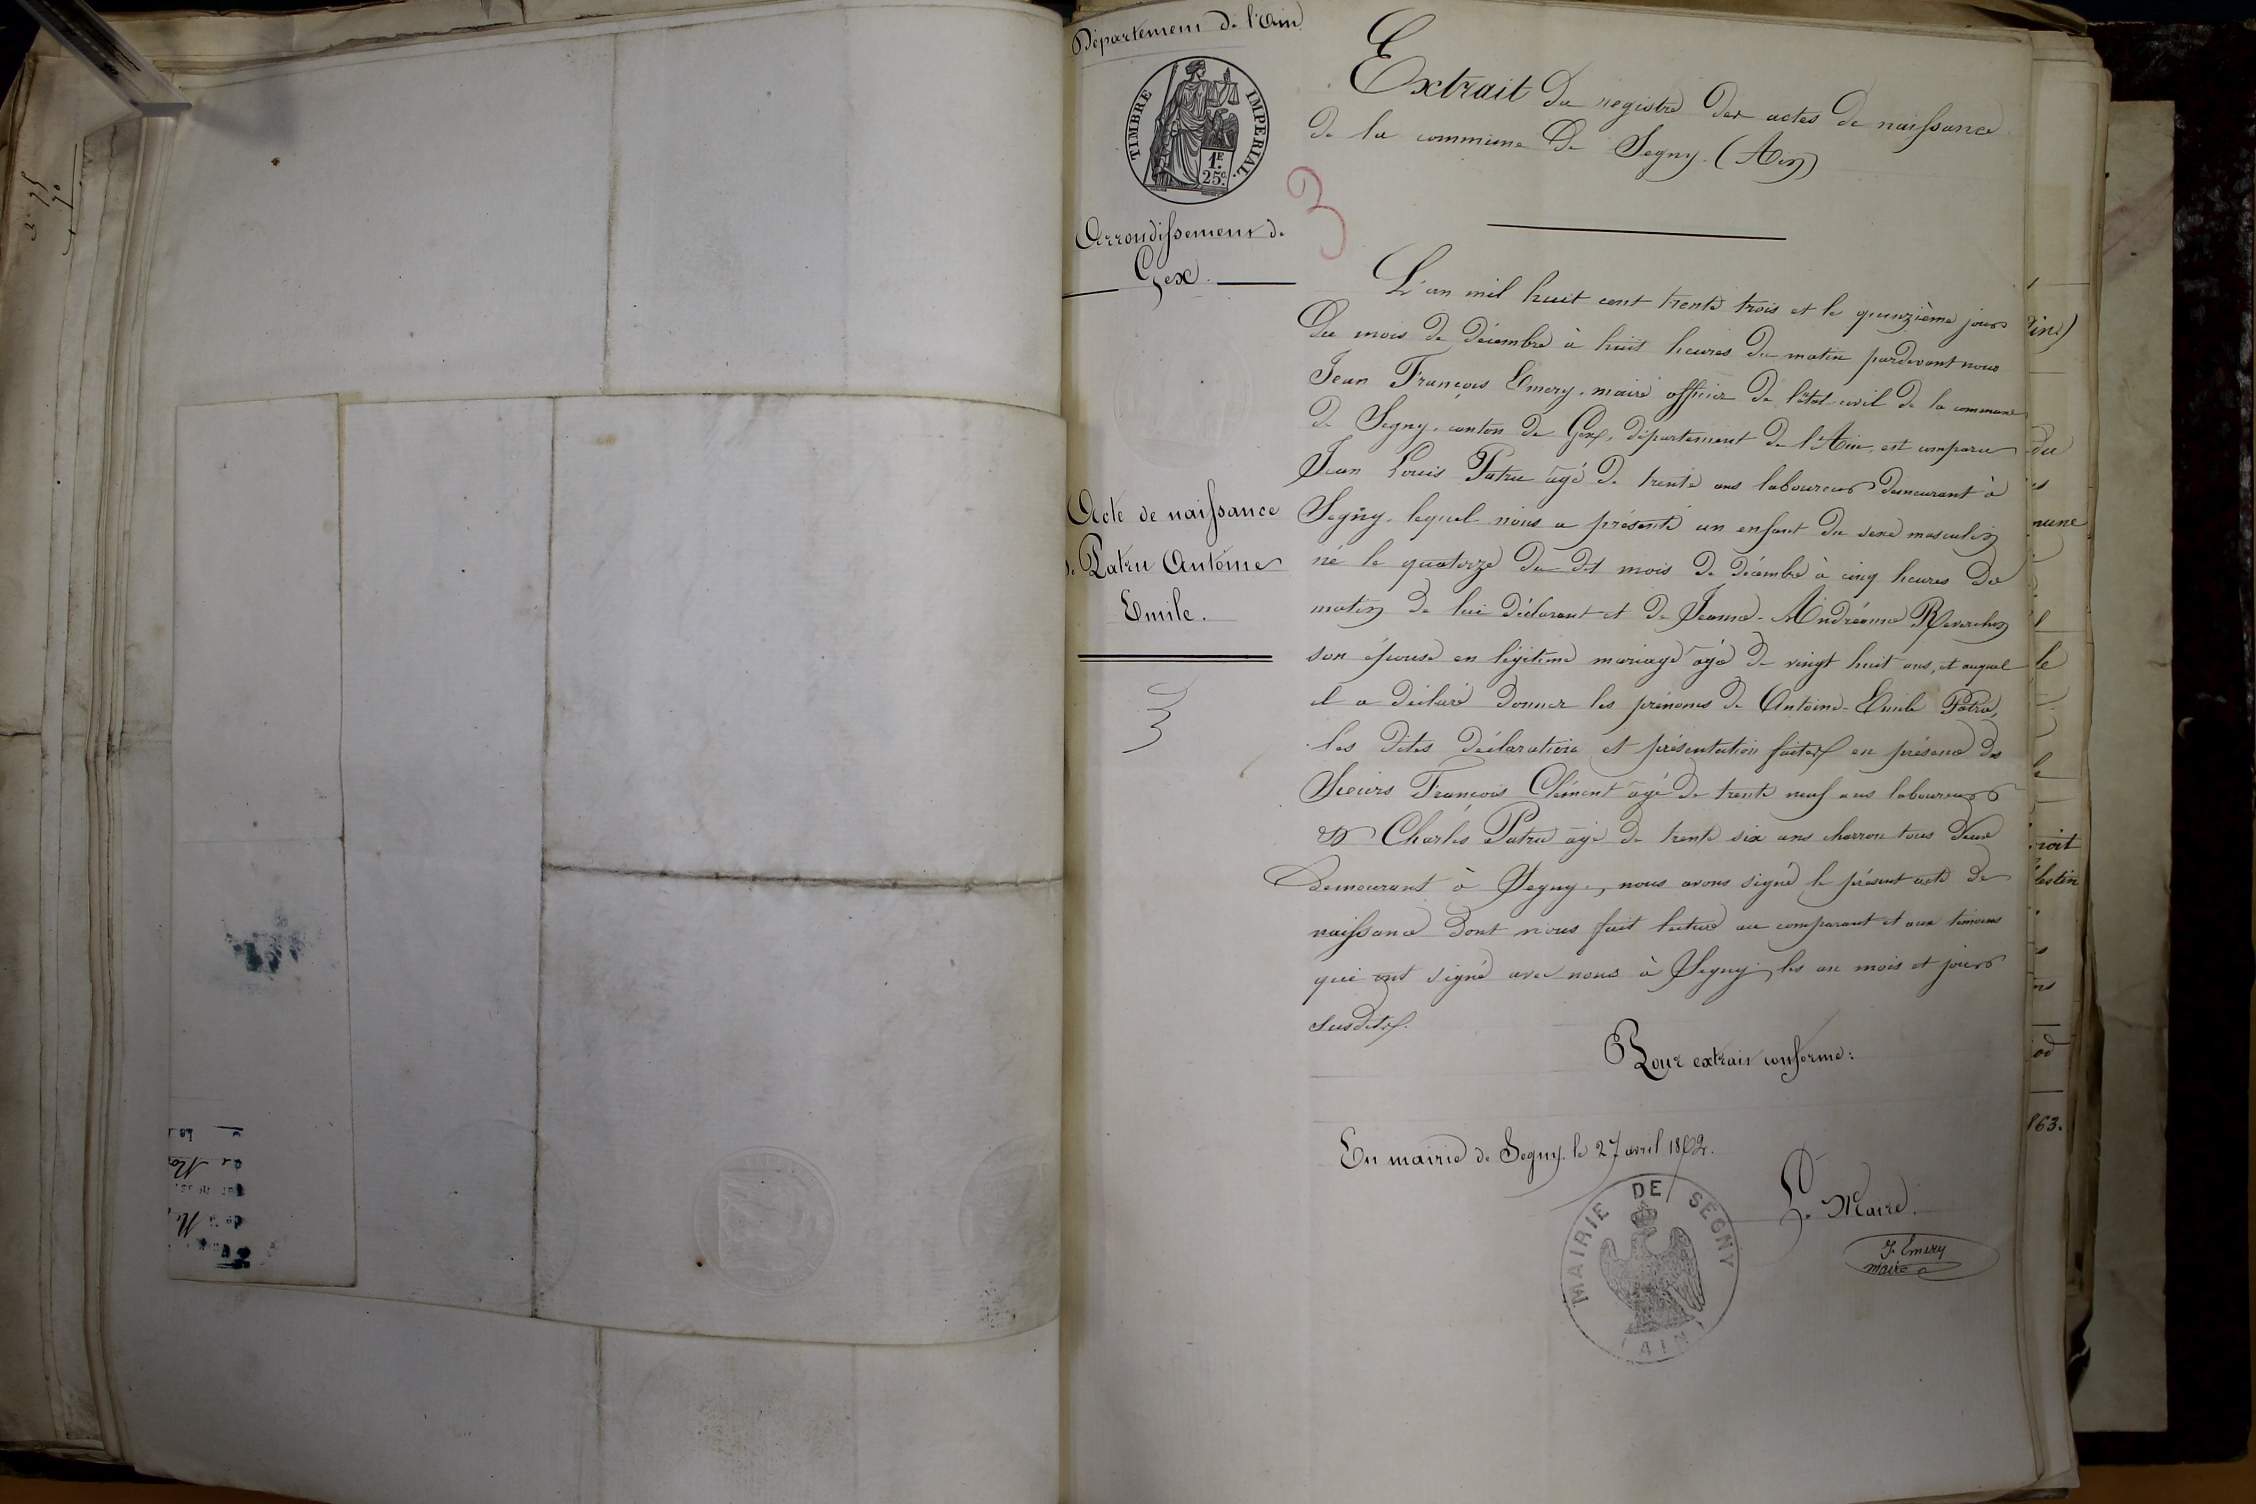 Département de l'Ain
TIMBRE IMPERIAL.
1F
25c.
Arrondissement de
Gex.
Acte de naissance
de Patru Antoine
Emile.
3
3
Extrait du registre des actes de naissance
de la commune de Segny. (Ain)
L'an mil huit cent trente trois et le quinzième jour
du mois de décembre à huit heures du matin pardevant nous
Jean François Emery, maire officier de l'état civil de la commune
de Segny, canton de Gex, département de l'Ain, est comparu
Jean Louis Patru âgé de trente ans laboureur demeurant à
Segny, lequel nous a présenté un enfant du sexe masculin
né le quatorze du dit mois de décembre à cinq heures du
matin de lui déclarant et de Jeanne-Andréanne Reverchon
son épouse en légitime mariage âgé de vingt huit ans, et auquel
il a déclaré donner les prénoms de Antoine-Emile Patru,
les dites déclaration et présentation faites en présence des
Sieurs François Clément âgé de trente neuf ans laboureur
et Charles Patru âgé de trente six ans charron tous deux
demeurant à Segny, nous avons signé le présent acte de
naissance dont nous fait lecture au comparant et aux témoins
qui ont signé avec nous à Segny, les an mois et jour
susdits.
Pour extrait conforme:
En mairie de Segny, le 27 avril 1862.
Le Maire.
J. Emery
maire
MAIRIE DE SEGNY
(AIN)
du
mune
le
roit
lestin
863.